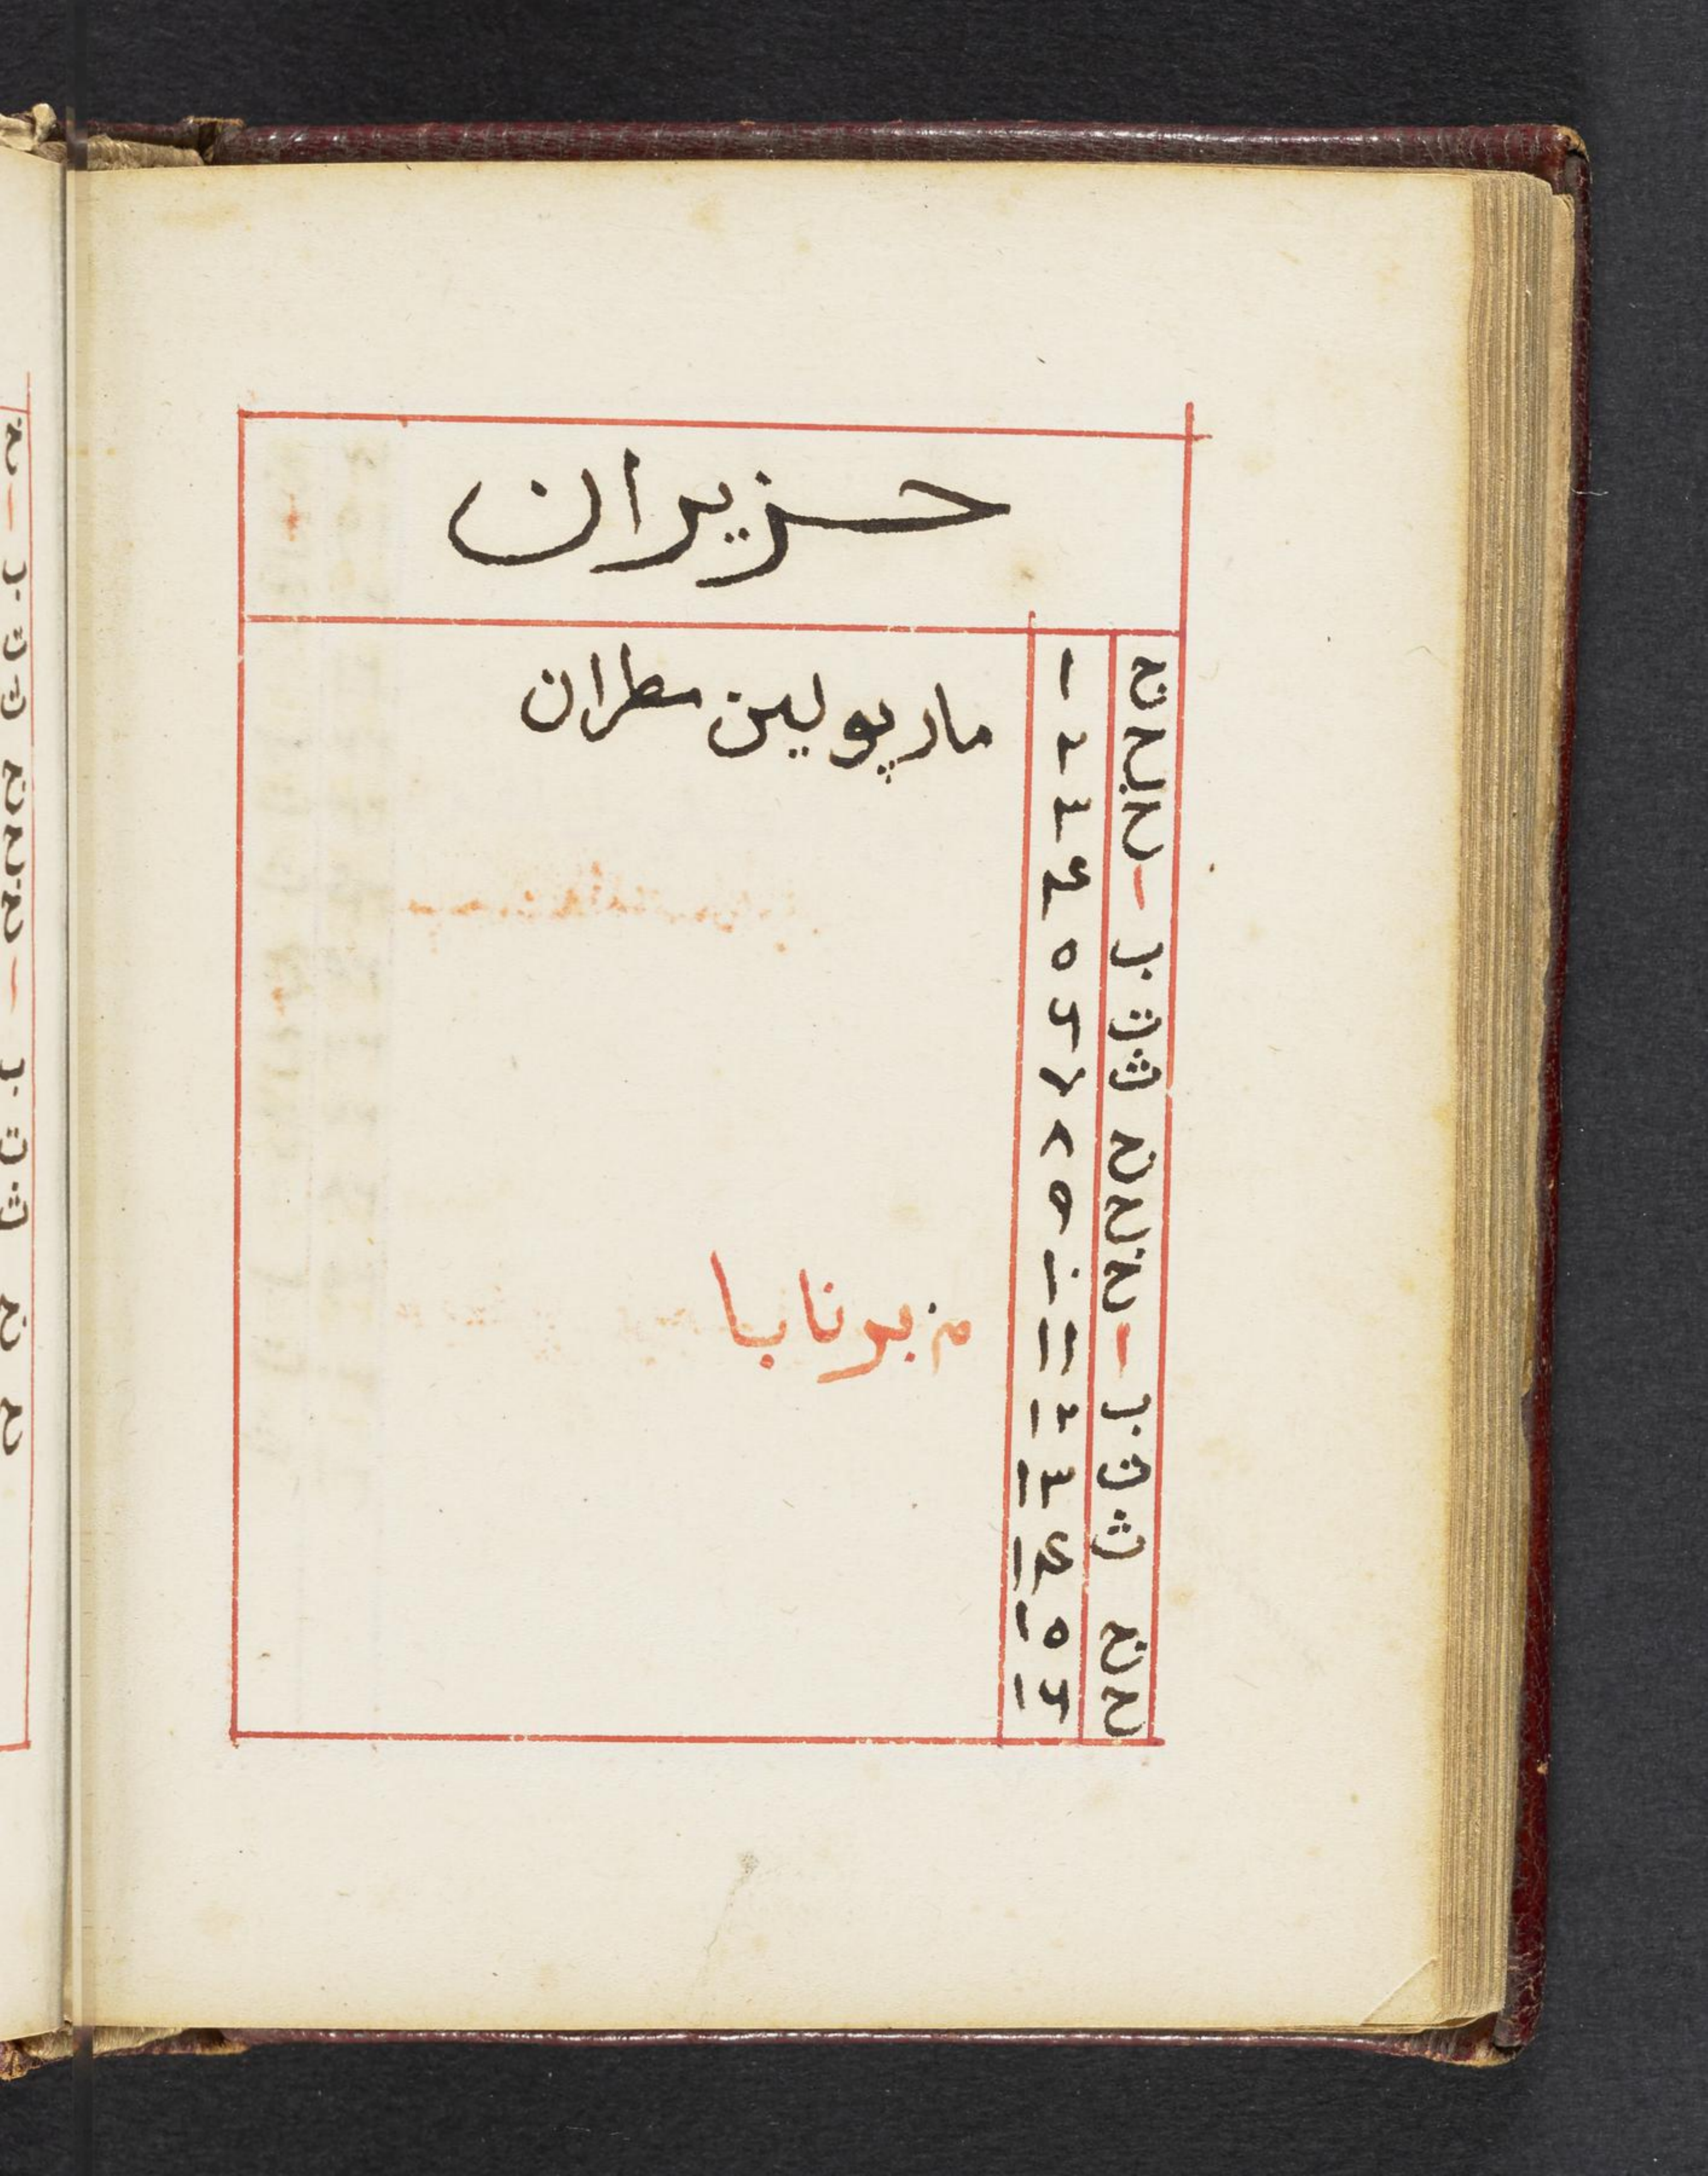 حزيران
ج ١ مار پولين مطران
ح ٢
خ ٣
ا ٤
ب ٥
ت ٦
ث ٧
ج ٨
ح ٩
خ ١٠
ا ١١ برنابا
ب ١٢
ت ١٣
ث ١٤
ج ١٥
ح ١٦